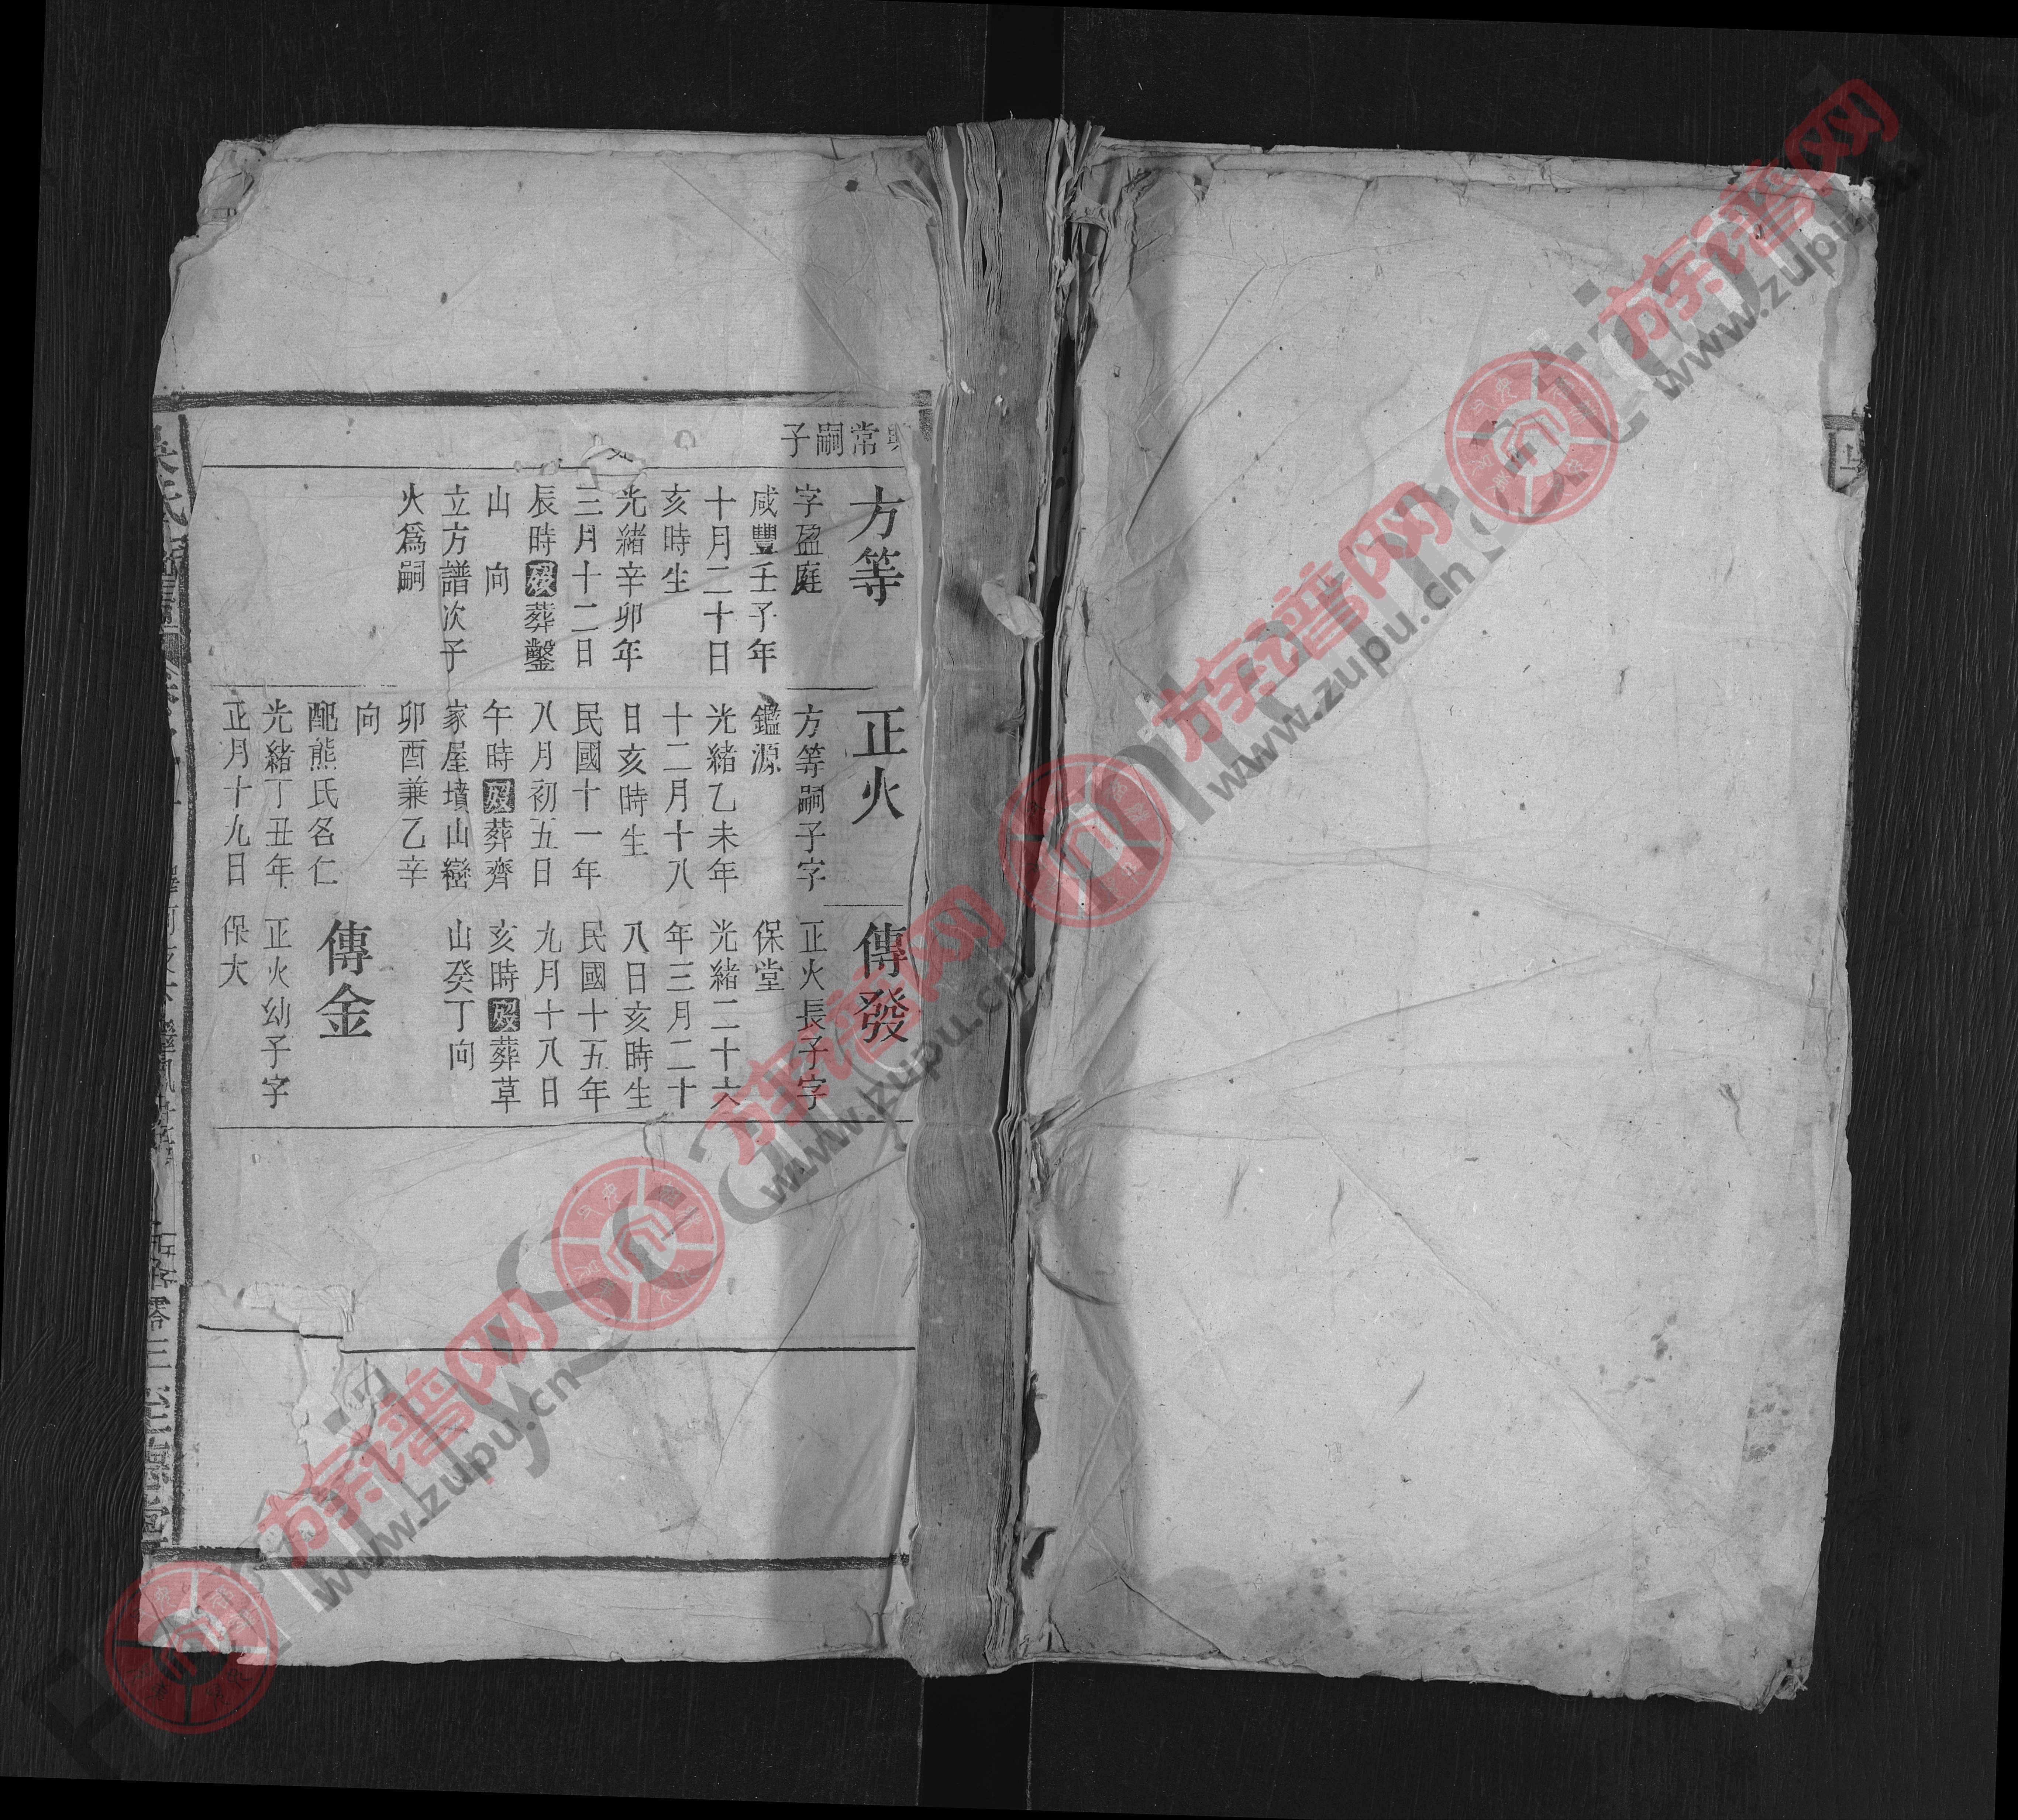 常嗣子
方等
字盈庭
咸豐壬子年
十月二十日
亥時生
光緒辛卯年
三月十二日
辰時歿葬鑿
山　向
立方譜次子
火爲嗣
正火
方等嗣子字
鑑源
光緒乙未年
十二月十八
日亥時生
民國十一年
八月初五日
午時歿葬齊
家屋墳山巒
卯酉兼乙辛
向
配熊氏名仁
光緒丁丑年
正月十九日
傳發
正火長子字
保堂
光緒二十六
年三月二十
八日亥時生
民國十五年
九月十八日
亥時歿葬草
山癸丁向
傳金
正火幼子字
保大
三至德堂
族谱网
www.zupu.cn
族谱网
www.zupu.cn
族谱网
www.zupu.cn
族谱网
www.zupu.cn